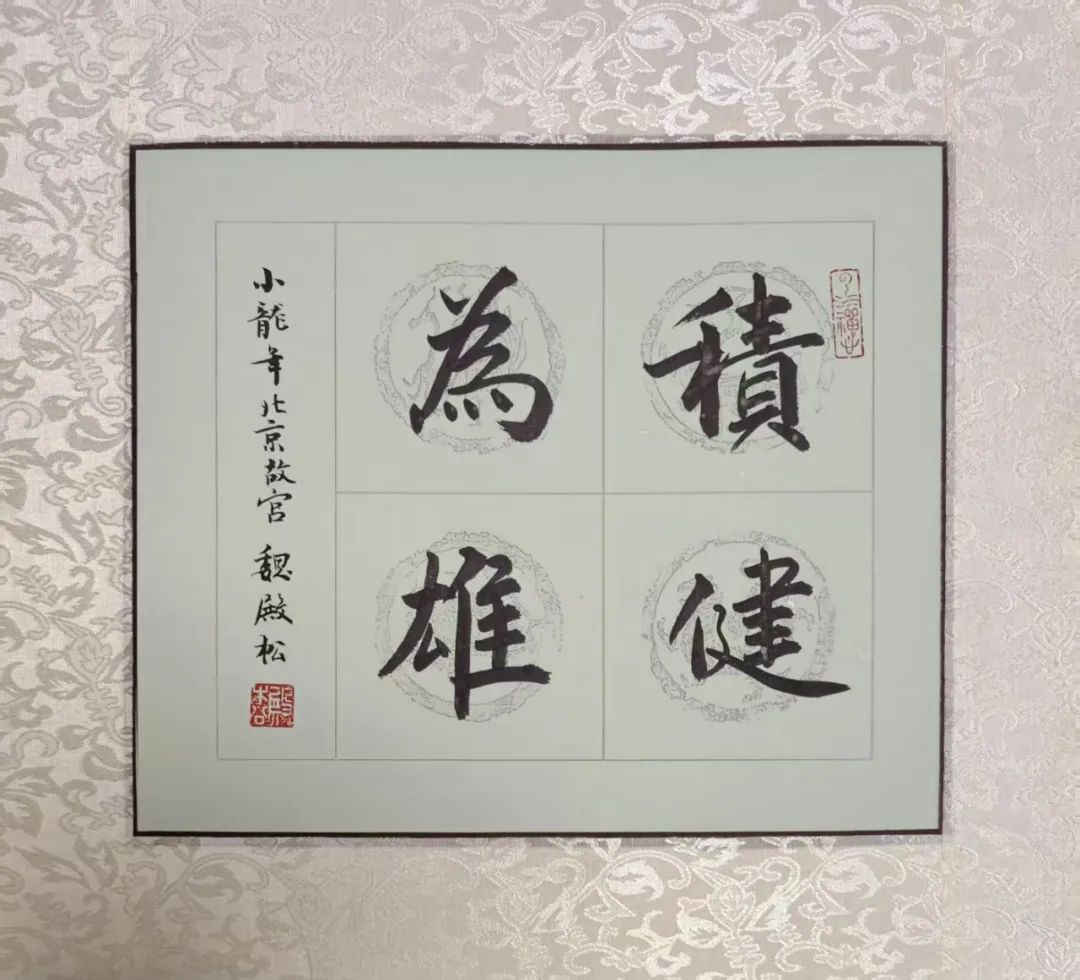 積健
為雄
小龍年北京故宮 魏殿松
殿松